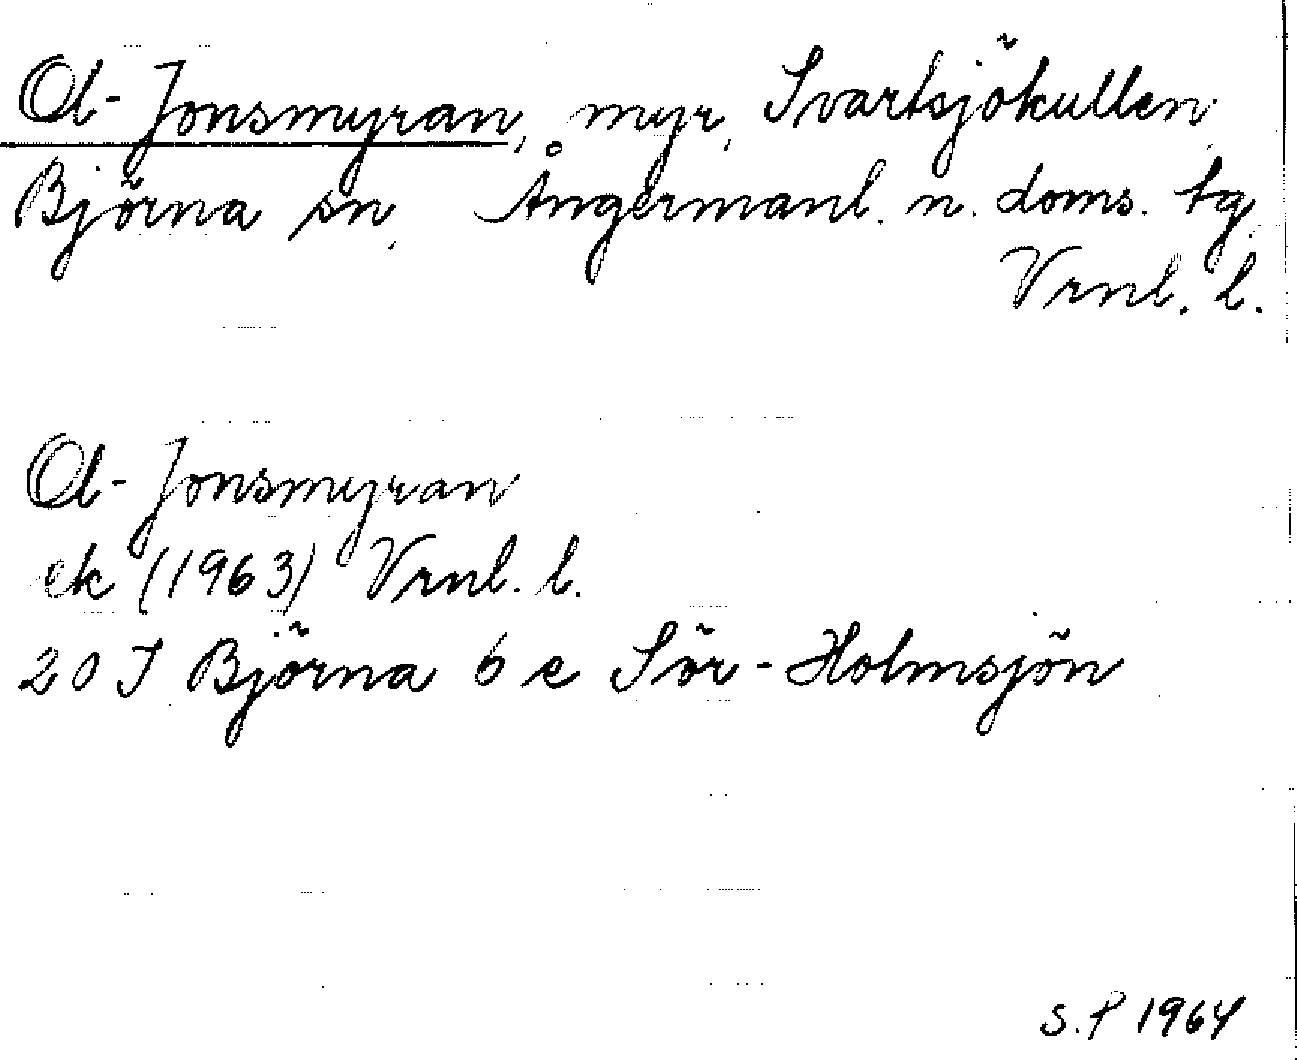 Ol-Jonsmyran, myr, Svartsjökullen,
Björna sn, Ångermanl. n. doms. tg.
Vrnl. l.
Ol-Jonsmyran
ek (1963) Vrnl. l.
20 J Björna 6 e Sör-Holmsjön
S.P 1964